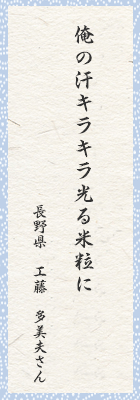 俺の汗キラキラ光る米粒に
長野県　工藤　多美夫さん